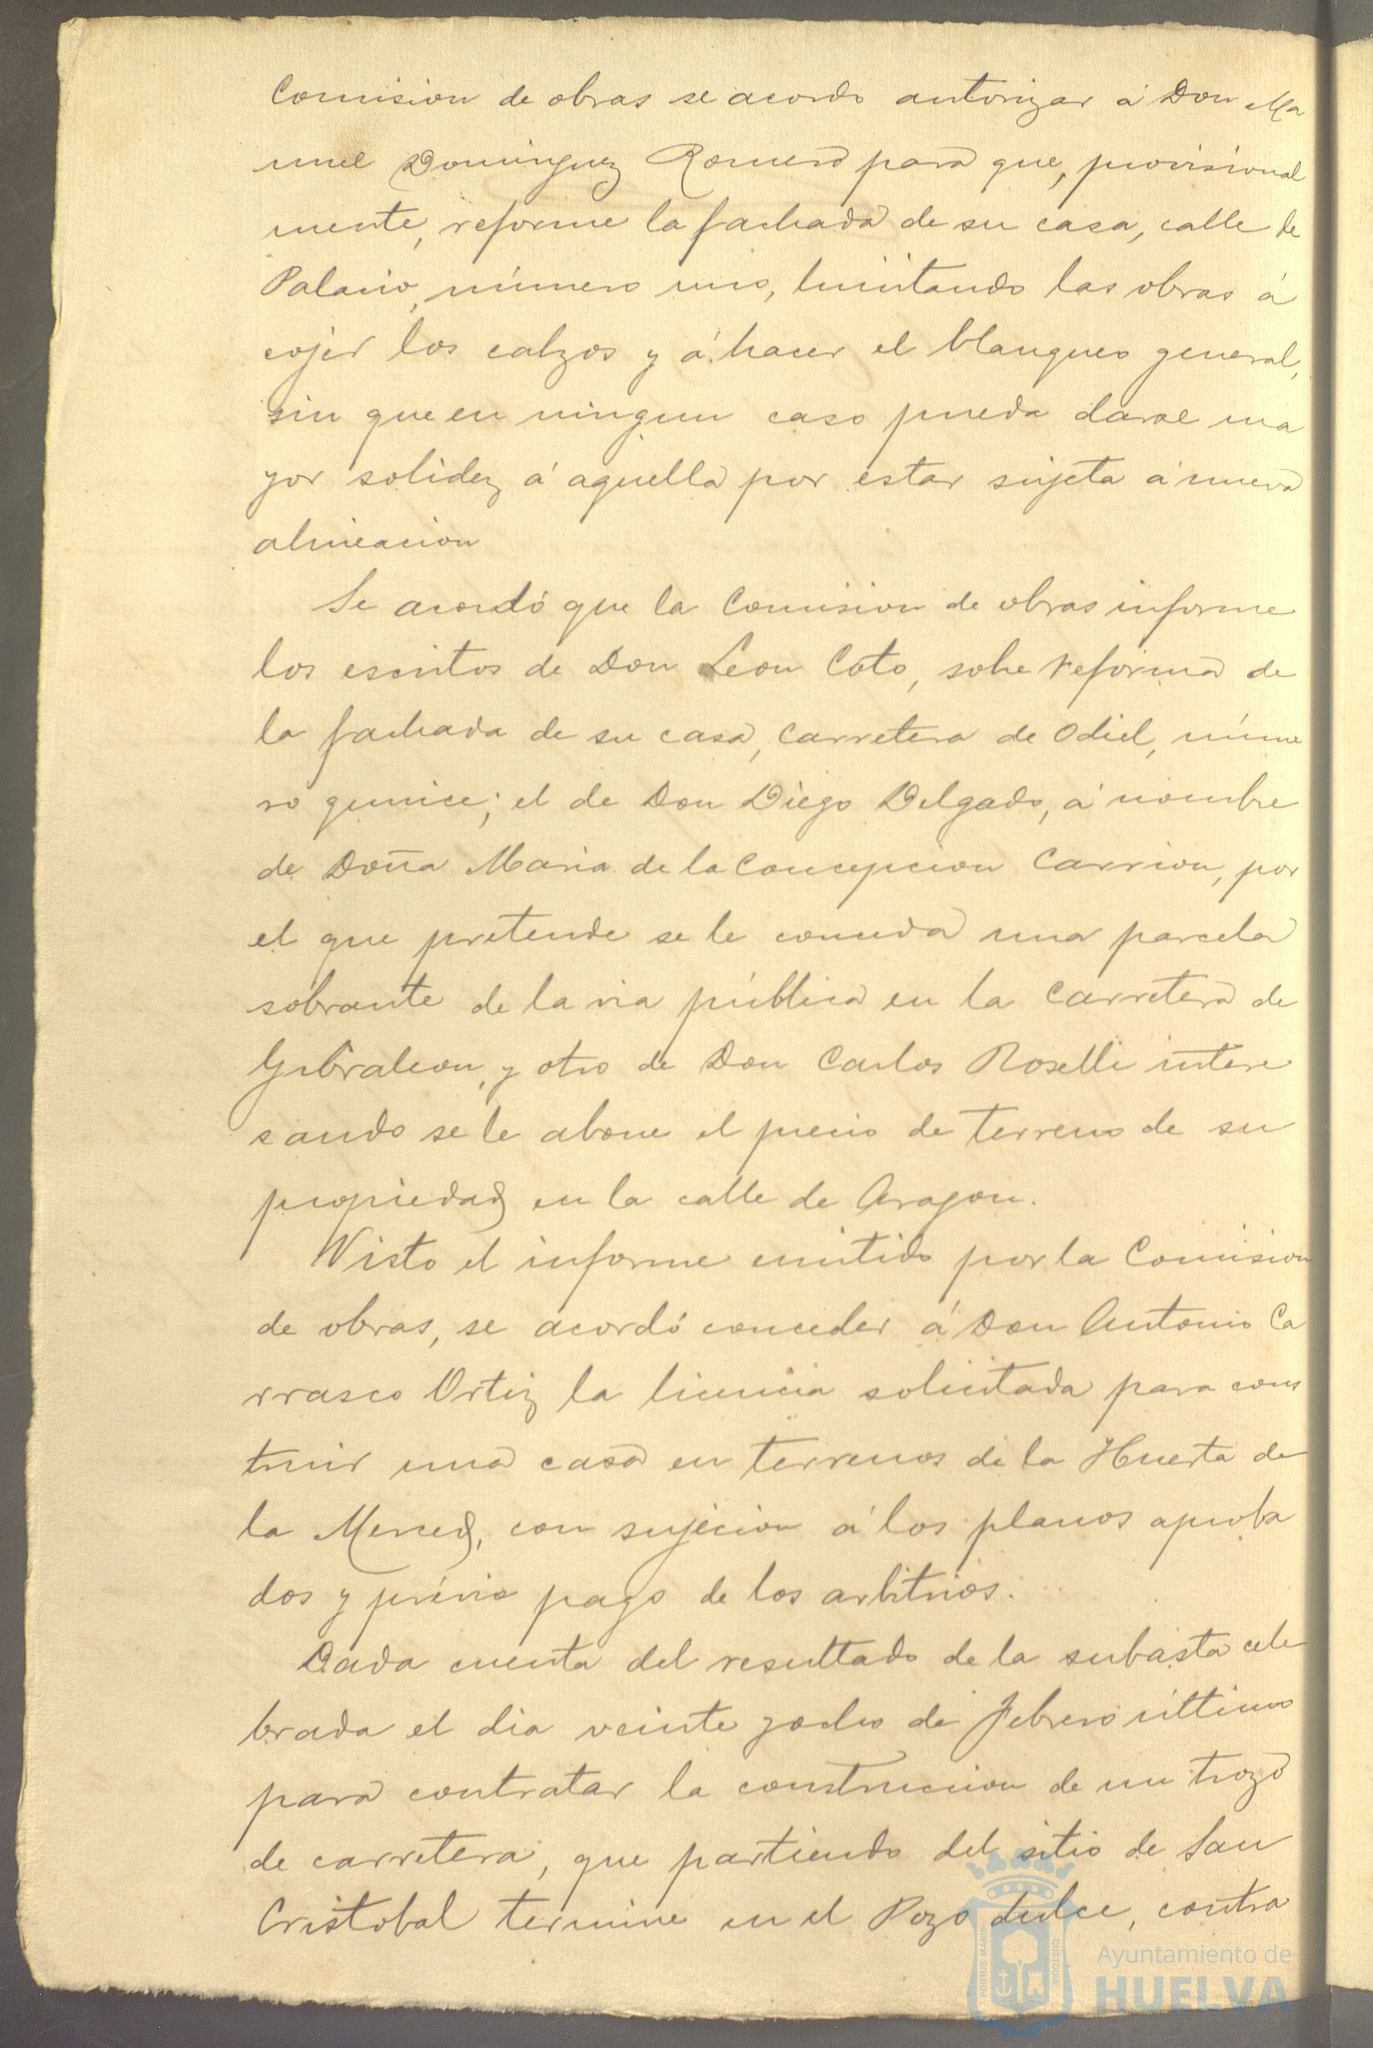 Comision de obras se acordo autorizar á Don Ma
nuel Dominguez Romero para que, provisional
mente, reforme la fachada de su casa, calle de
Palacio, número uno, limitando las obras á
cojer los calzos y á hacer el blanqueo general,
sin que en ningun caso pueda darse ma
yor solidez á aquella por estar sujeta á nueva
alineacion
Se acordó que la Comision de obras informe
los escritos de Don Leon Coto, sobre reforma de
la fachada de su casa, Carretera de Odiel, núme
ro quince; el de Don Diego Delgado, á nombre
de Doña Maria de la Concepcion Carrion, por
el que pretende se le conceda una parcela
sobrante de la via pública en la Carretera de
Gibraleon, y otro de Don Carlos Roselli intere
sando se le abone el precio de terreno de su
propiedad en la calle de Aragon.
Visto el informe emitido por la Comision
de obras, se acordó conceder á Don Antonio Ca
rrasco Ortiz la licencia solicitada para cons
truir una casa en terrenos de la Huerta de
la Merced, con sujecion á los planos aproba
dos y prévio pago de los arbitrios.
Dada cuenta del resultado de la subasta cele
brada el dia veinte y ocho de Febrero último
para contratar la construccion de un trozo
de carretera, que partiendo del sitio de San
Cristobal termine en el Pozo dulce, contra
PORTUS MARIS CUSTODIA
Ayuntamiento de
HUELVA